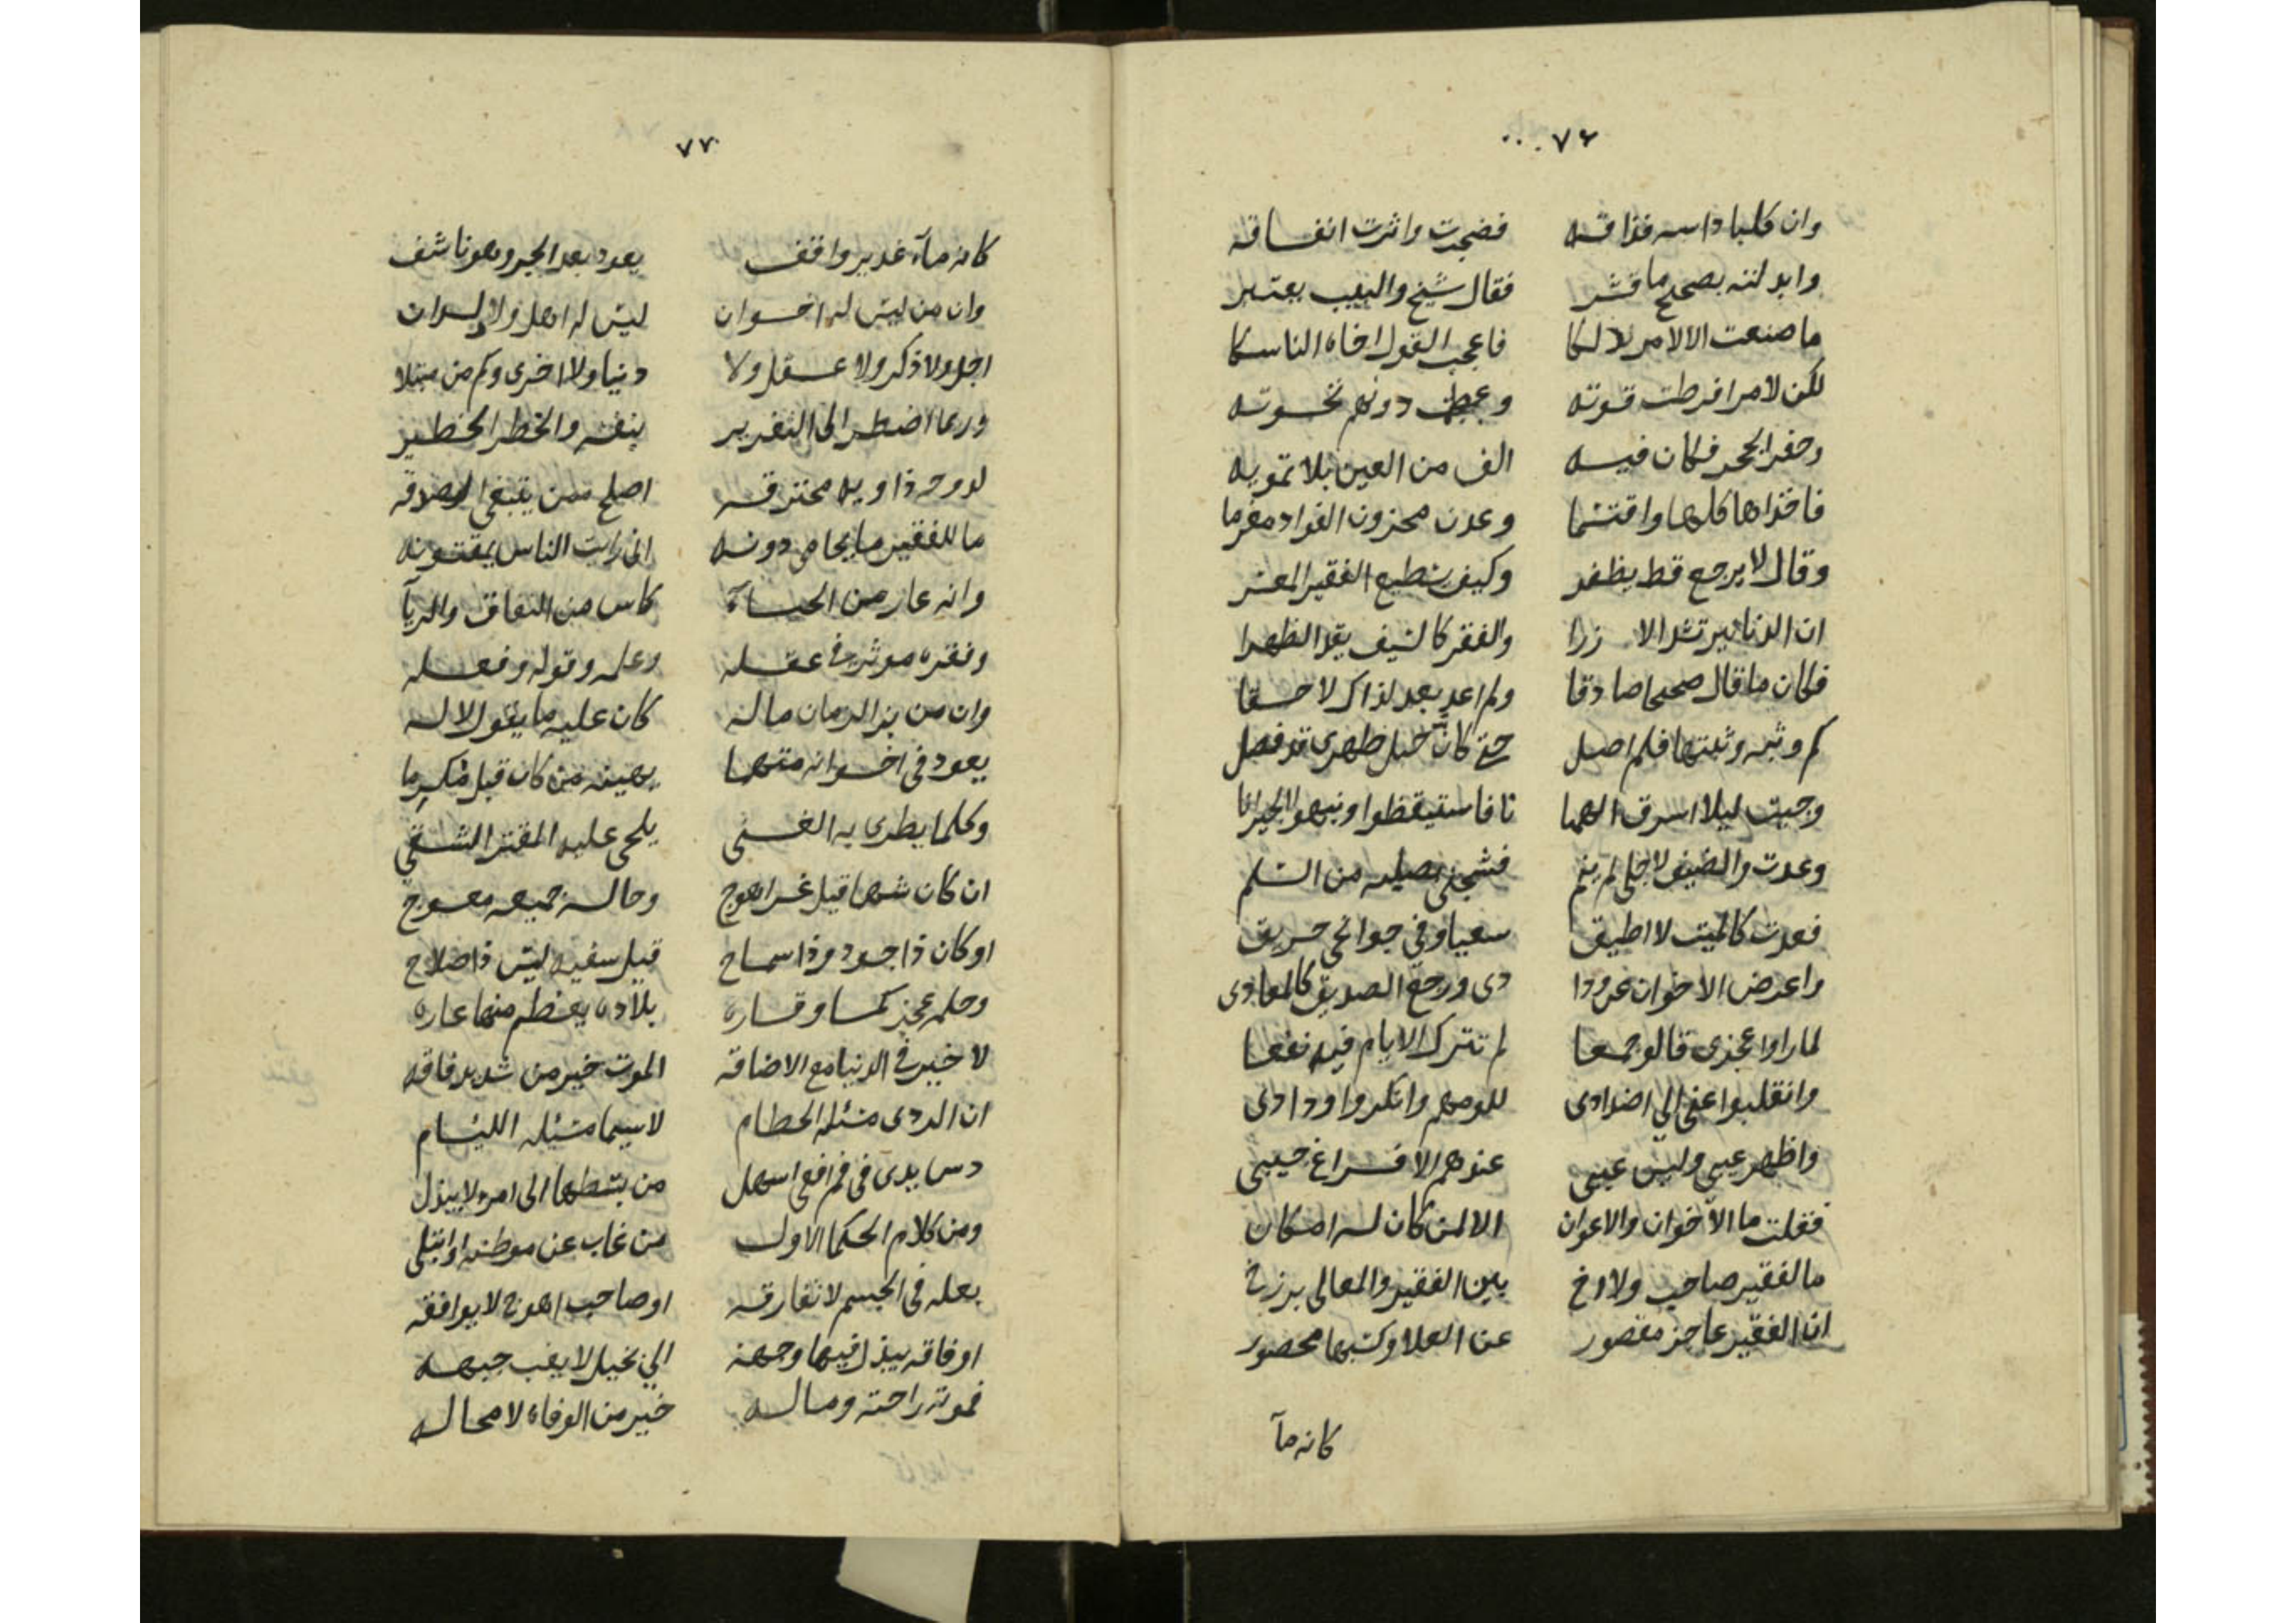 ٧٦
وان كلبا داسه فذاقه فضجرت واثرت انفساقه
وابدلته بصحيح ما قشر فقال شيخ واللبيب يعتبر
ما صنعت الا لامر ذلكا فاعجب القول اخاه الناسكا
لكن لامر افرطت قوته وعجبت دونهم نخوته
وحفر الجحر فكان فيه الف من العين بلا تمويه
فاخذاها كلها واقتسما وعدت محزون الفواد مغرما
وقال لا يرجع قط يظفر وكيف يسطيع الفقير المعسر
ان الدنانير تشد الازرا والفقر كالسيف يقد الظهرا
فكان ما قال صحيحا صادقا ولم اعد بعد لذاك لاحقا
كم وثبه وثبتها فلم اصل حتى كان حبل ظهرى قد فصل
وجيت ليلا اسرق الهميا نا فاستيقظوا ونبهوا الجيرانا
وعدت والضيف لاجلى لم ينم فشجنى من السلم
فعدت كالميت لا اطيق سعيا وفي جوانحي حريق
واعرض الاخوان عن ودا دى ورجع الصديق كالمعادى
لما راوا عجزى قالو جمعا لم تترك الايام فيه نفعا
وانقلبوا عنى الى اضدادى للومهم وانكروا ودادى
واظهر عيبى وليس عيبى عندهم الا فراغ جيبى
فقلت ما الاخوان والاعوان الا لمن كان له امكان
ما لفقير صاحب ولا اخ بين الفقير والمعالى برزخ
ان الفقير عاجز مقصور عن العلا وكسبها محصور
كانه مآ
٧٧
كانه مآء غدير واقف يعود بعد الجر وهو ناشف
وان من ليس له اخوان ليس له اهل ولا ولدان
اجل ولا ذكر ولا عقل ولا دنيا ولا اخرى وكم من مبتلا
وربما اضطر الى التغرير بنفسه والخطر الخطير
لدوحه ذاويه محترقه اصلح ممن يبتغى الصدقه
ما للفقير ما يحامى دونه انى رايت الناس يمقتونه
وانه عار من الحيآء كاس من النفاق والريآ
وفقره موثر في عقله وعلمه وقوله وفعله
وان من بز الزمان ماله كان عليه ما يقول لا له
يعود فى اخوانه متهما يهينه من كان قبل مكرما
وكلما يطرى به الغنى يلحى عليه المقتر الشقي
ان كان شهما قيل غر اهوج وحاله جميعه معوج
او كان ذا جود وذا سماح قيل سفيه ليس ذا صلاح
وحلمه عجز كما وقاره بلاده يعظم منها عاره
لا خير في الدنيا مع الاضاقه الموت خير من شديد فاقه
ان الردى مسئله الحطام لا سيما مسئله الليام
دس يدى فى فم افعى اسهل من بسطها الى امرء لا يبذل
ومن كلام الحكما الاول من غاب عن موطنه او ابتلى
بعله فى الجسم لا تفارقه او صاحب اهوج لا يوافقه
او فاقه يبذل فيها وجهه الي بخيل لا يغب جبهه
فموته راحته وماله خير من الوفاه لا محاله